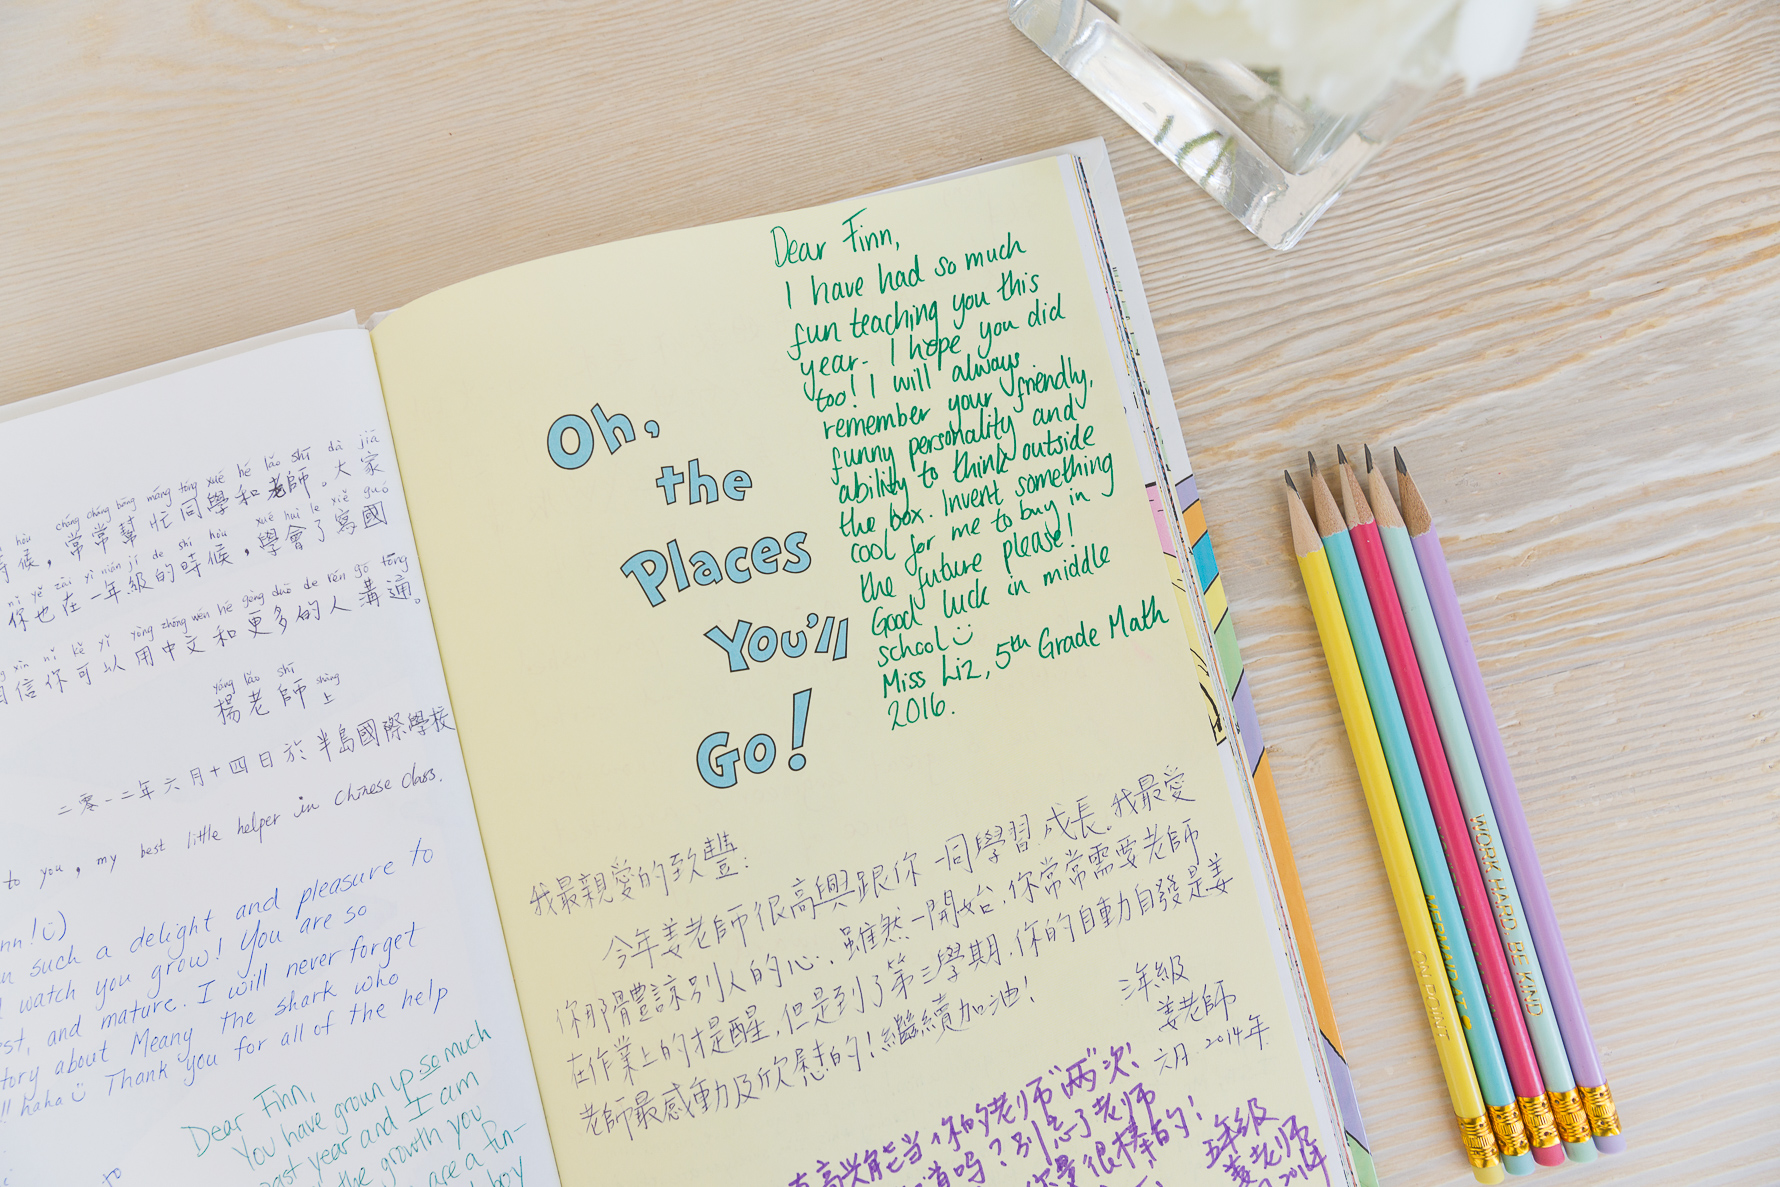 hòu cháng cháng bāng máng tóng xué hé lǎo shī dà jiā
時候，常常幫忙同學和老師。大家
nǐ yě zài yì nián jí de shí hòu xué huì le xiě guó
你也在一年級的時候，學會了寫國
xìn nǐ kě yǐ yòng zhōng wén hé gèng duō de rén gōu tōng
相信你可以用中文和更多的人溝通。
yáng lǎo shī shàng
楊老師上
二零一二年六月十四日於半島國際學校
to you, my best little helper in Chinese class.
such a delight and pleasure to
watch you grow! You are so
and mature. I will never forget
about Meany the shark who
haha☺ Thank you for all of the help
Dear Finn,
You have grown up so much
year and I am
the growth you
are a fun-
boy
Oh,
the
Places
You'll
Go!
Dear Finn,
I have had so much
fun teaching you this
year. I hope you did
too! I will always
remember your friendly,
funny personality and
ability to think outside
the box. Invent something
cool for me to buy in
the future please!
Good luck in middle
school☺
Miss Liz, 5th Grade Math
2016.
我最親愛的致豐：
今年姜老師很高興跟你一同學習.成長.我最愛
你那體諒別人的心.雖然一開始.你常常需要老師
在作業上的提醒,但是到了第三學期.你的自動自發是姜
老師最感動及欣慰的!繼續加油!
三年級
姜老師
六月.2014年
高兴能当你的老师"两"次!
道吗?别忘了老师
你是很棒的!
五年級
姜老师
2016年
ON POINT
MERMAID AT
WORK HARD. BE KIND